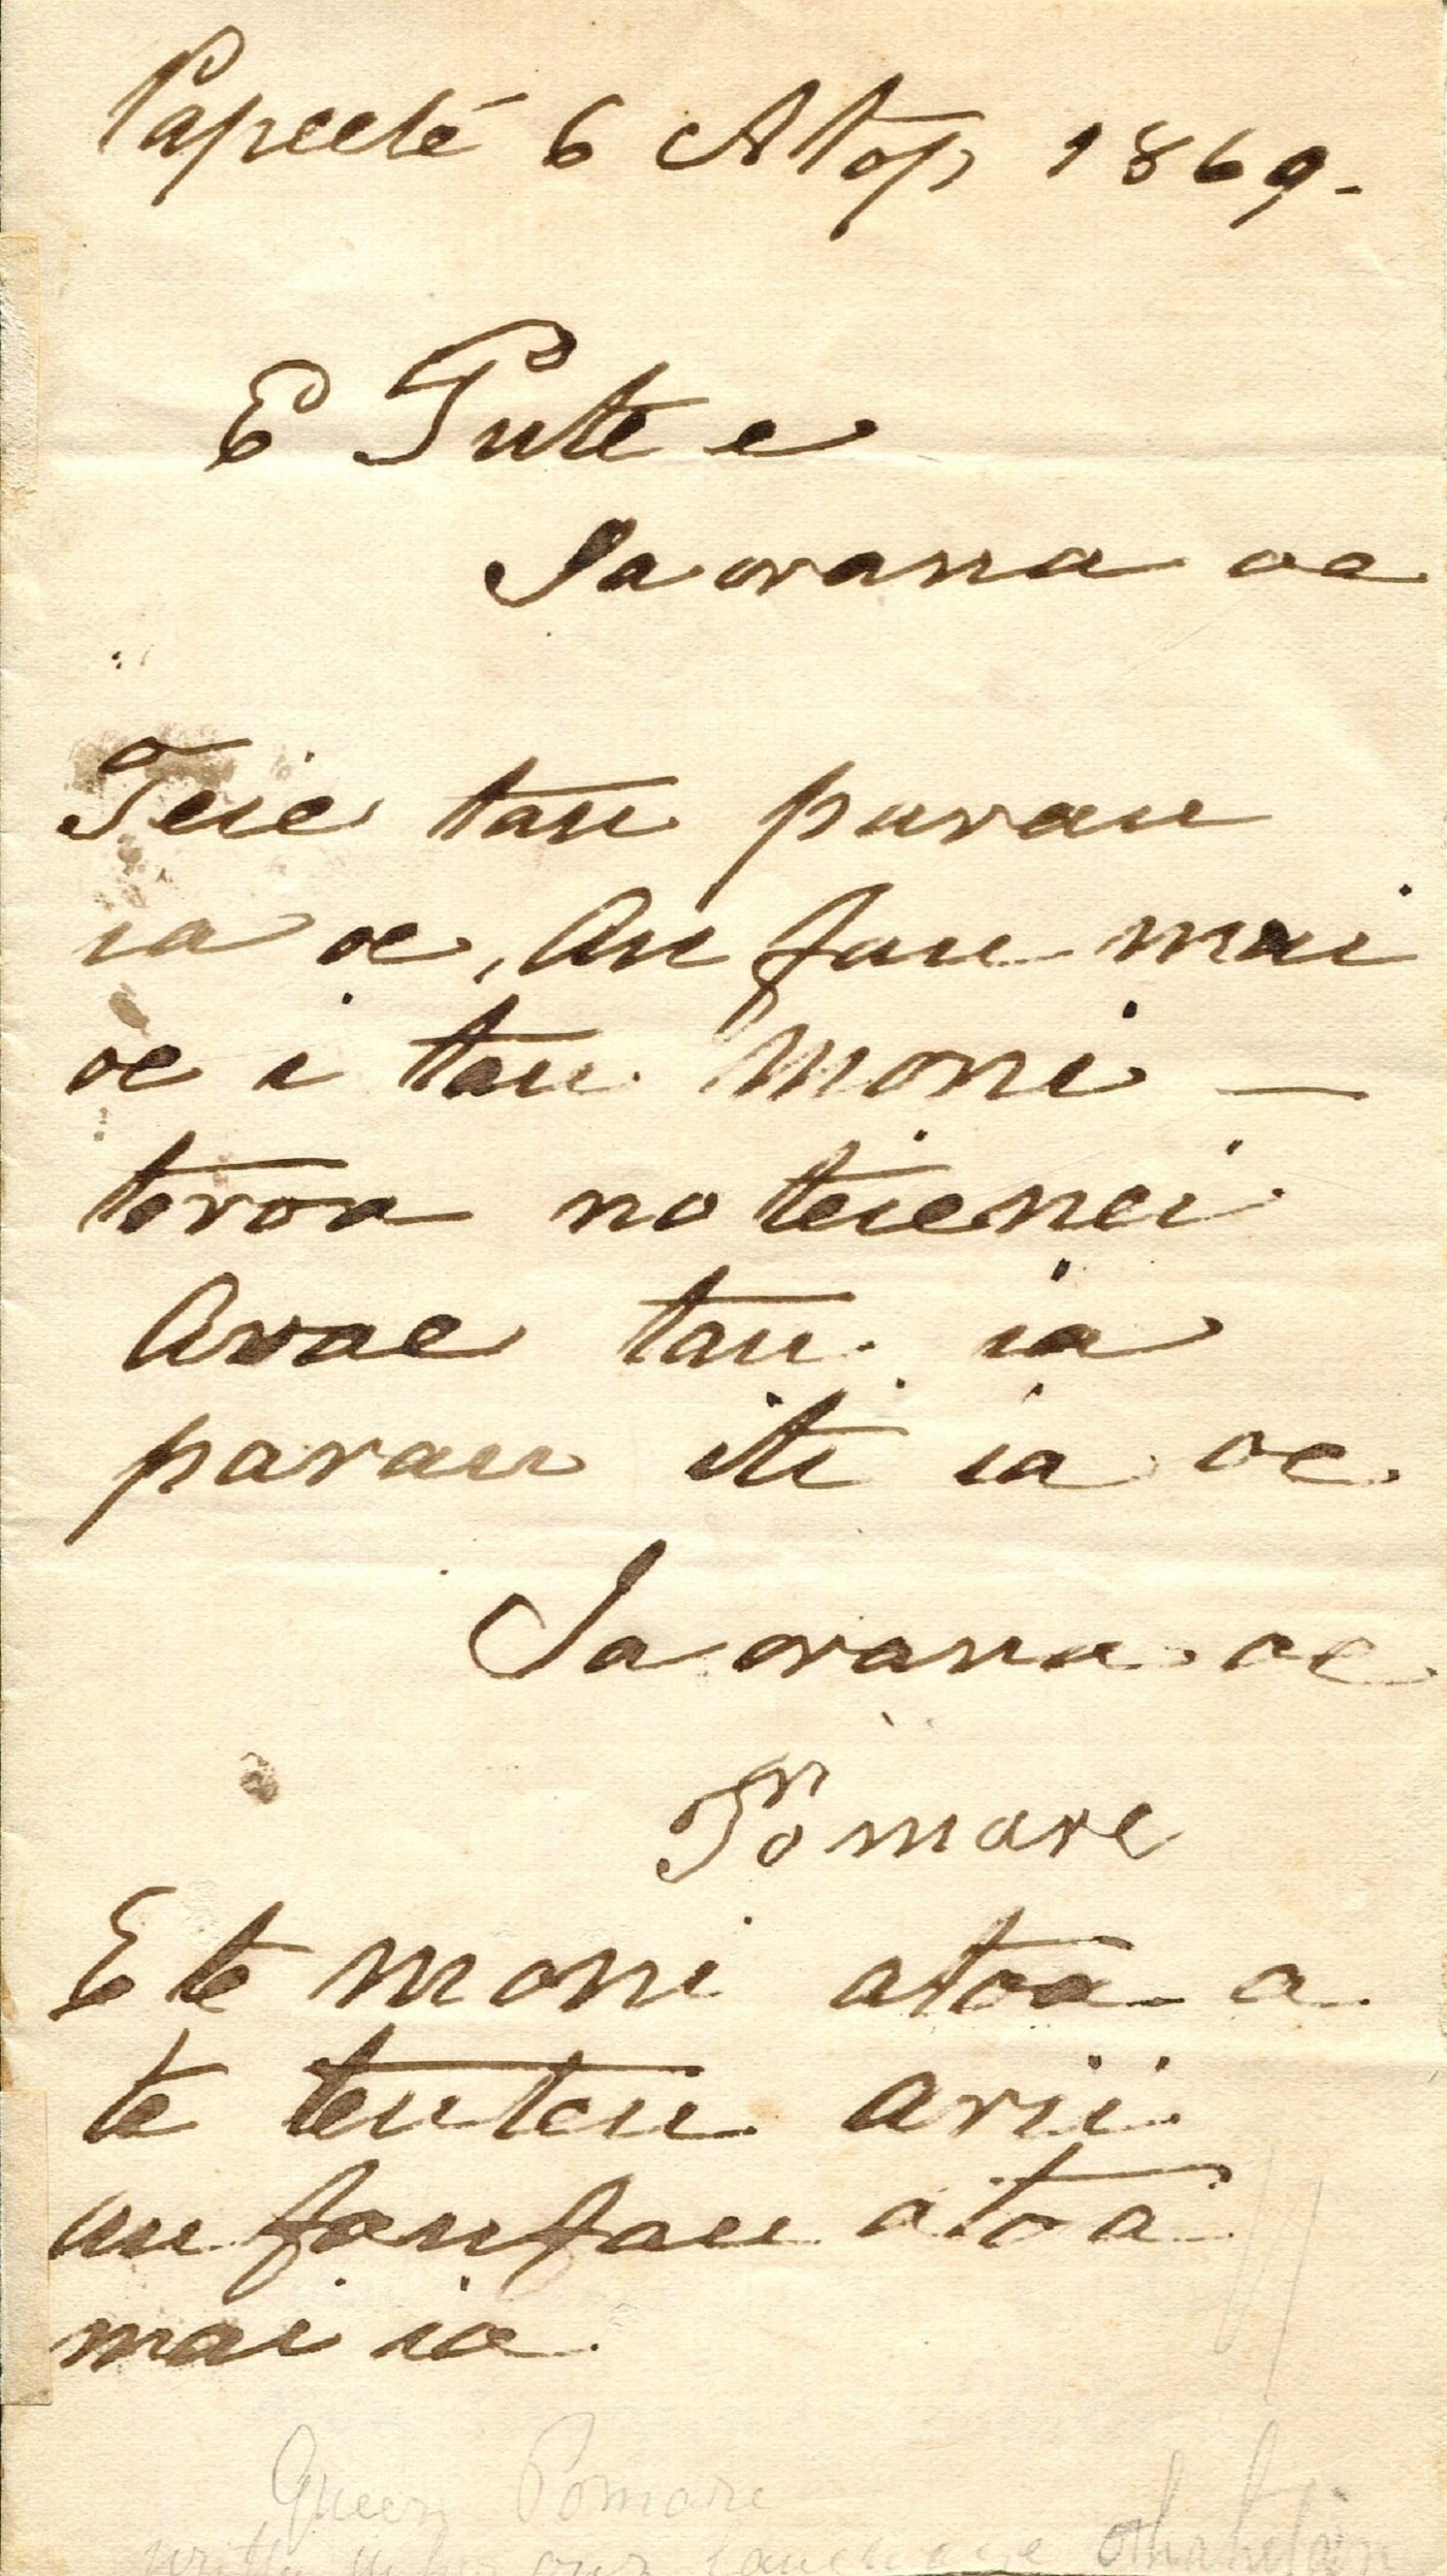 Papeeté 6 Atop 1869.
E Pute e
Ia orana oe
Teie tau parau
ia oe, Au fau mai
oe i tau moni —
toroa no teienei
Avae tau ia
parau iti ia oe
Ia orana oe
Pomare
E te moni atoa a
te teuteu arii
au faufau atoa
mai ia
Queen Pomare
written in her own language Othahetan